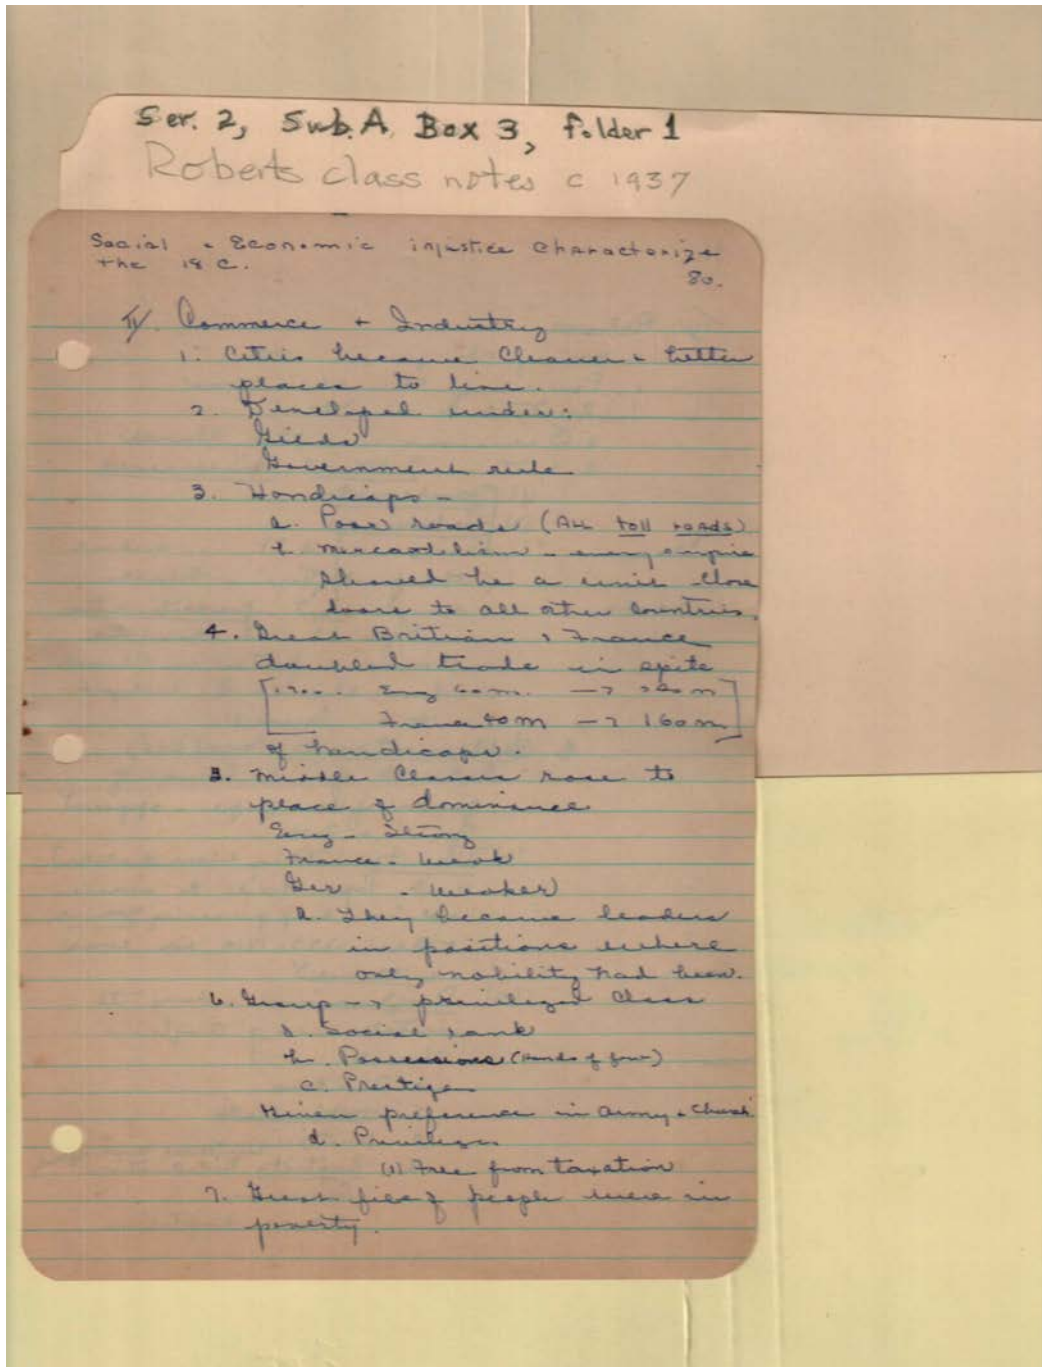 Ser. 2, Sub. A, Box 3, folder 1
Roberts class notes c 1937
Social + Economic injustice characterize
the 18 C.
80.
IV. Commerce + Industry
1. Cities became cleaner + better
places to live.
2. Developed under:
Gilds
Government rule
3. Handicaps -
a. Poor roads (ALL toll roads)
b. Mercantilism - every empire
should be a unit close
doors to all other countries.
4. Great Britian + France
doubled trade in spite
[ Eng 60 m. →
France 40 m → 160 m]
of handicaps.
5. Middle Classes rose to
place of dominance
Eng - Strong
France - weak
Ger - weaker
a. They became leaders
in positions where
only nobility had been.
6. Group → privileged class
a. Social rank
b. Possessions
c. Prestige
Given preference in army + church
d. Privileges
(1) Free from taxation
7. Great of people were in
poverty.